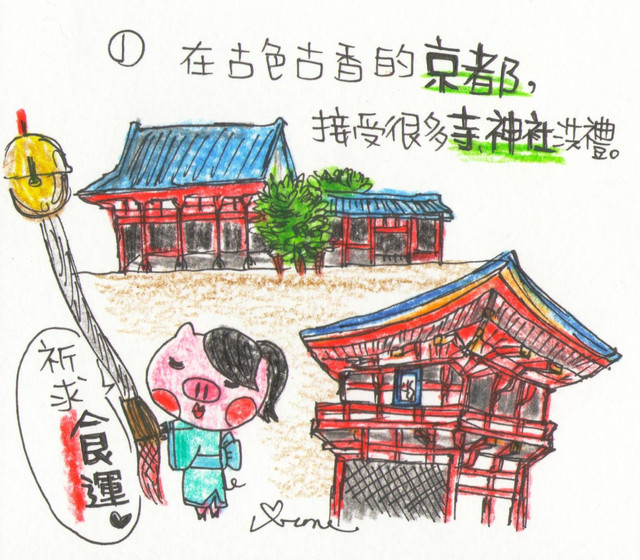 ① 在古色古香的京都,
接受很多寺、神社洗禮。
祈求
食運